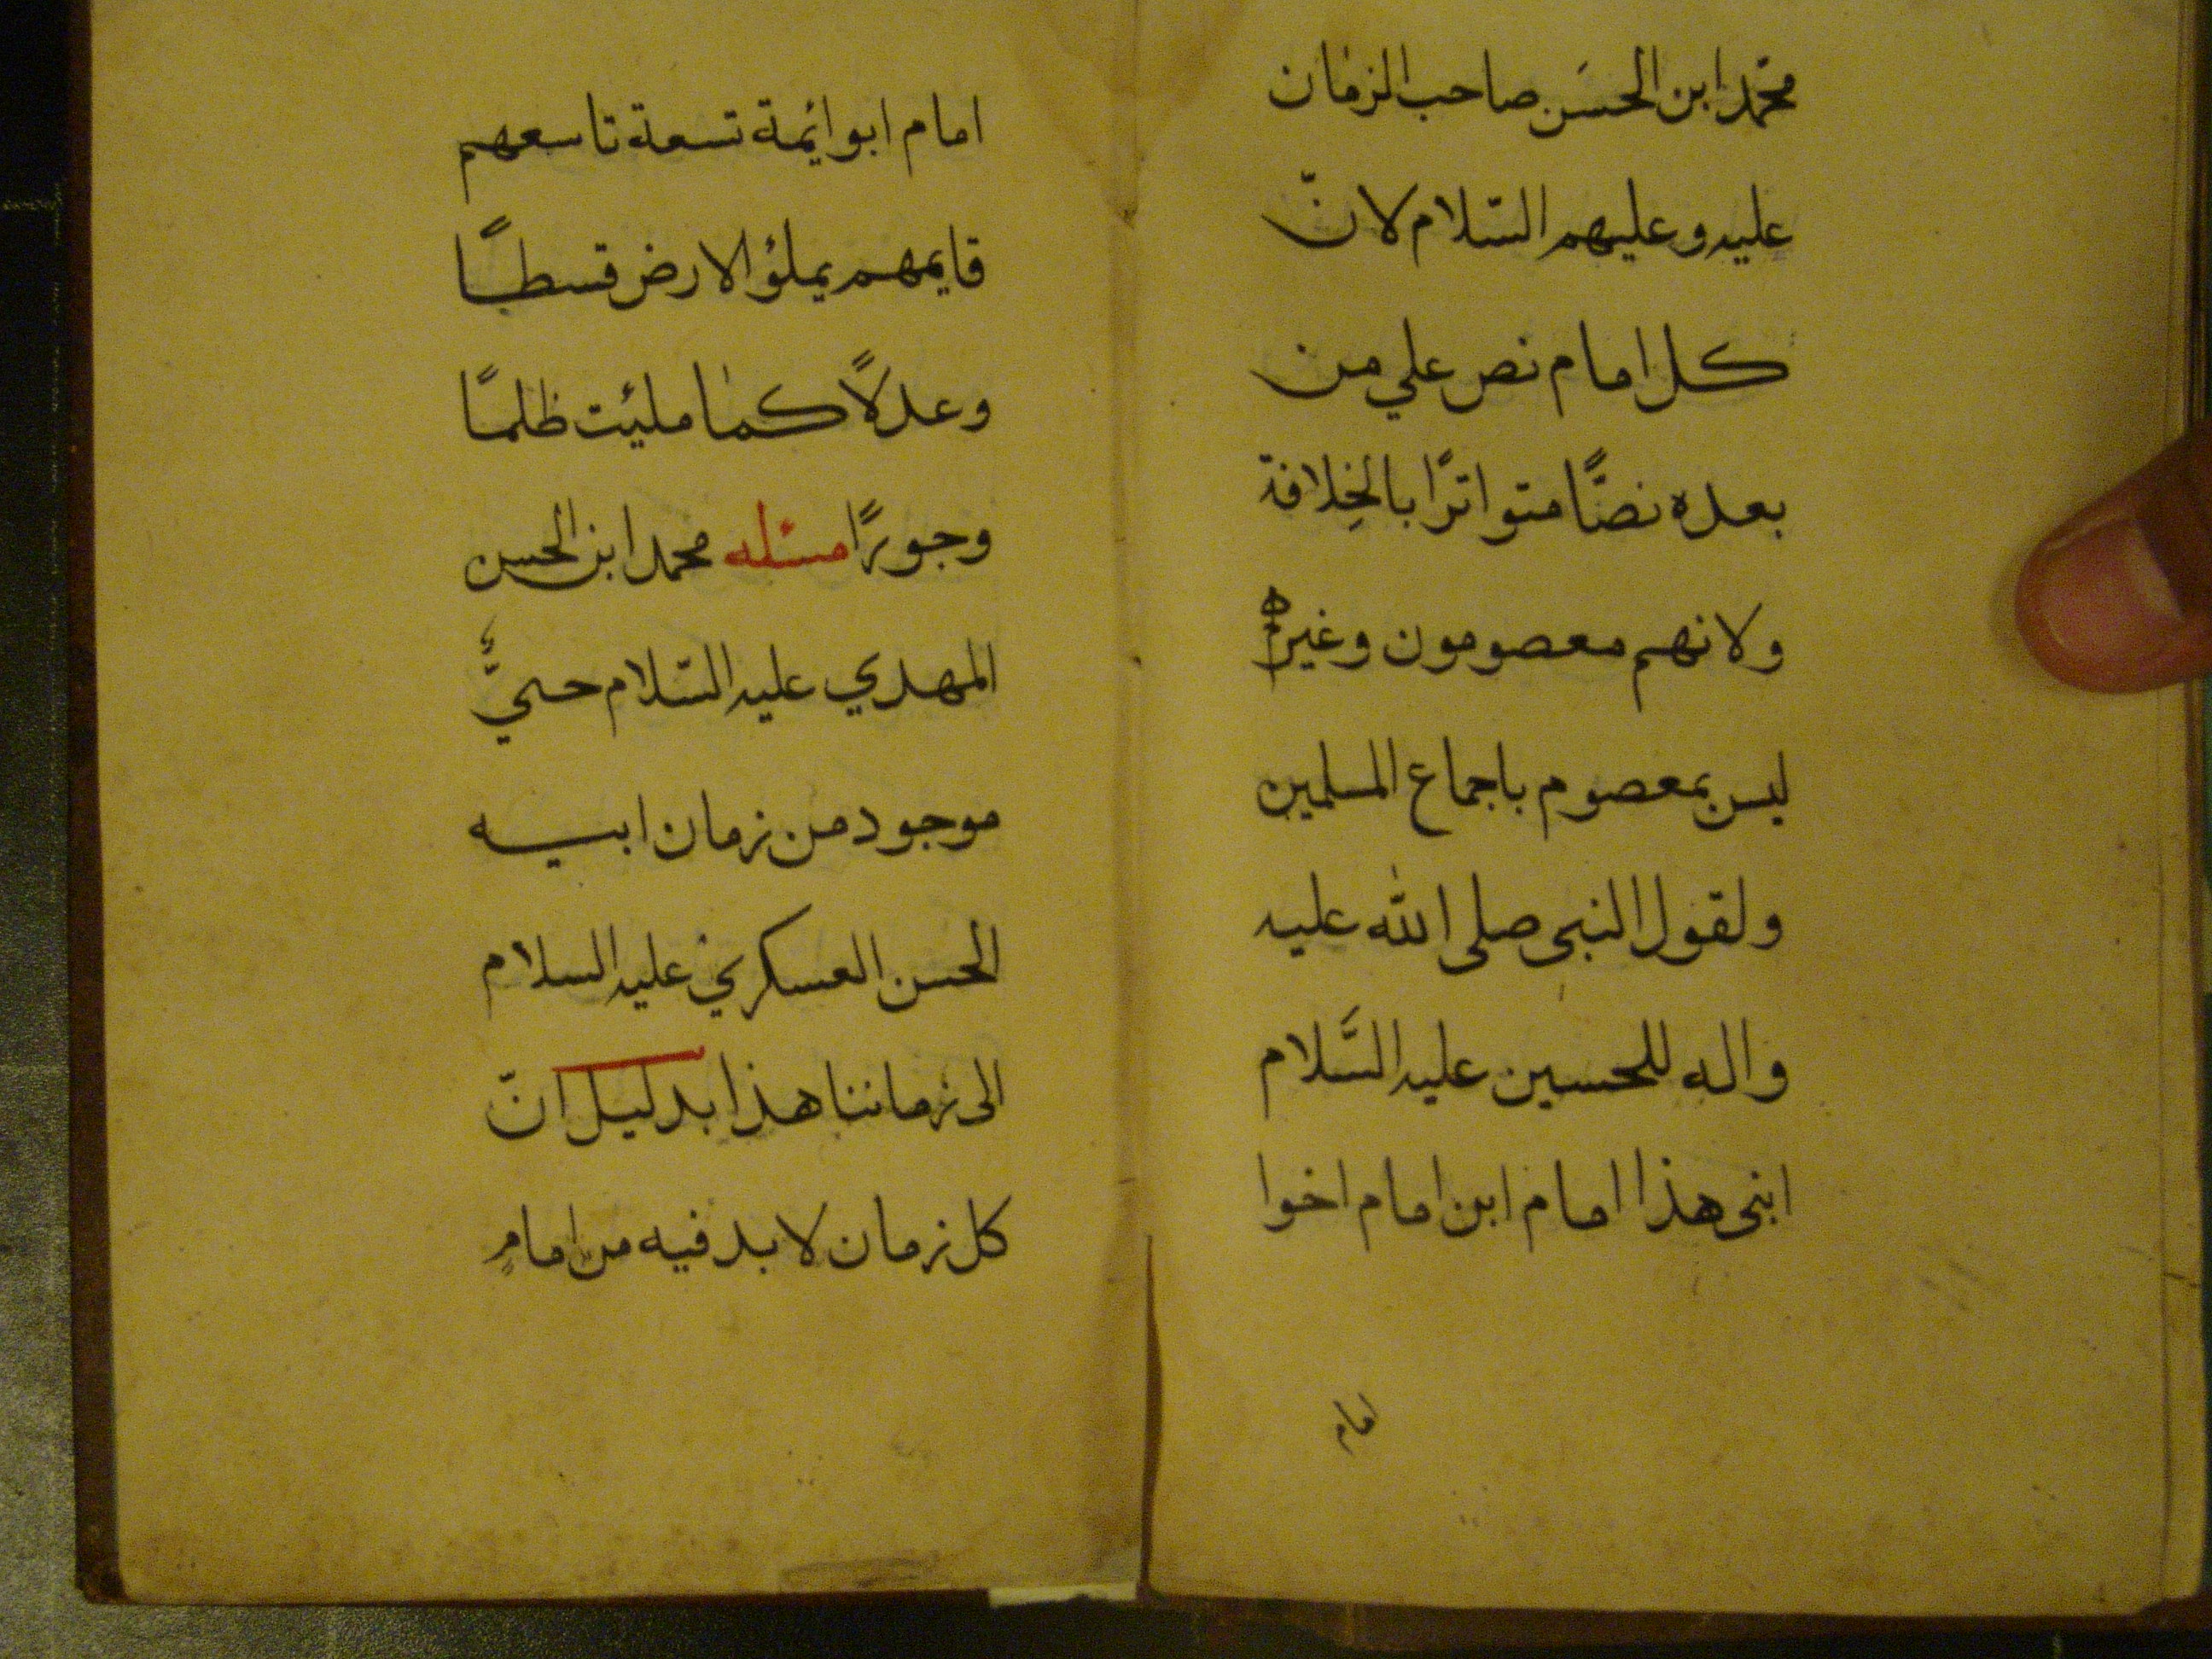 محمّد ابن الحسَن صاحب الزمان
عليه وعليهم السّلام لانّ
كل امام نص علي من
بعده نصًّا متواترًا بالخِلافة
ولانهم معصومون وغيرهم
ليس بمعصوم باجماع المسلمين
ولقول النبى صلى الله عليه
واله للحسين عليه السَّلام
ابنى هذا امام ابن امام اخوا
امام
امام ابو ائمة تسعة تاسعهم
قايمهم يملؤ الارض قسطًا
وعدلاً كما ملئت ظلمًا
وجورًا مسئله محمد ابن الحسن
المهدي عليه السّلام حيٌّ
موجود من زمان ابيه
الحسن العسكري عليه السلام
الى زماننا هذا بدليل انّ
كل زمان لا بد فيه من امامٍ